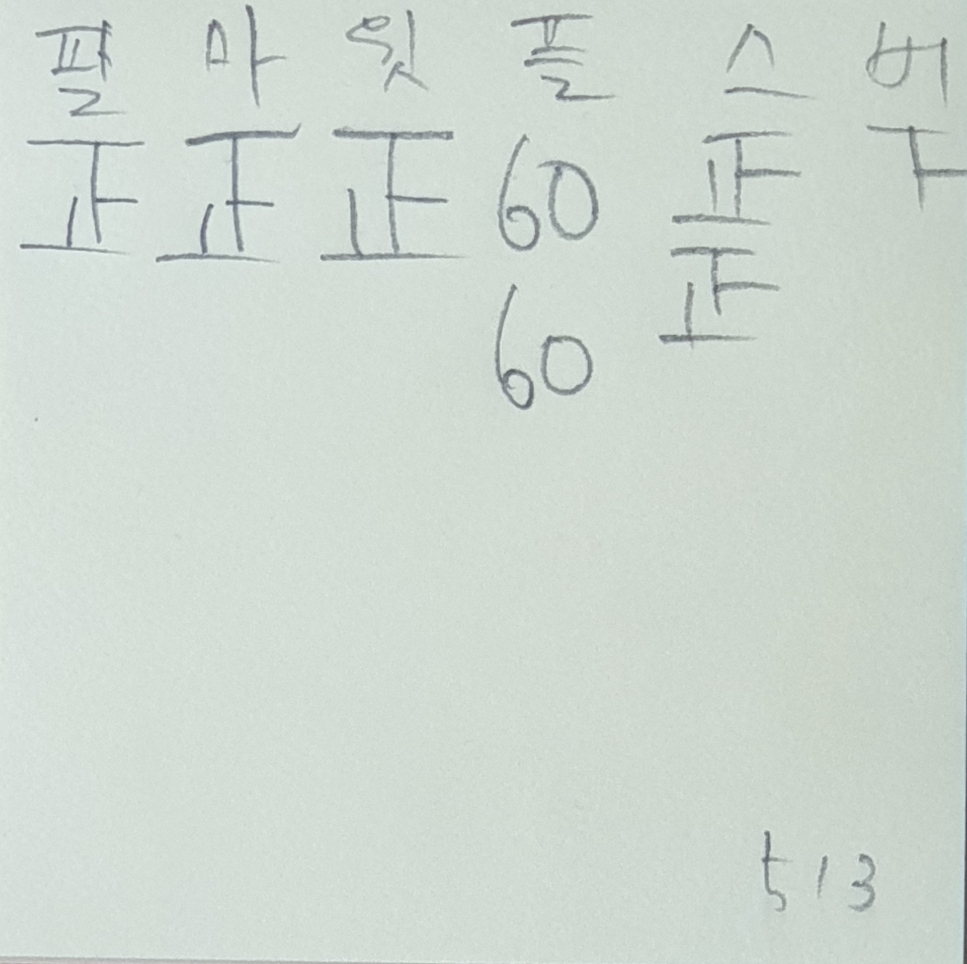 팔 마 윗 플 스 버
正 正 正 60 正 下
60 正
513